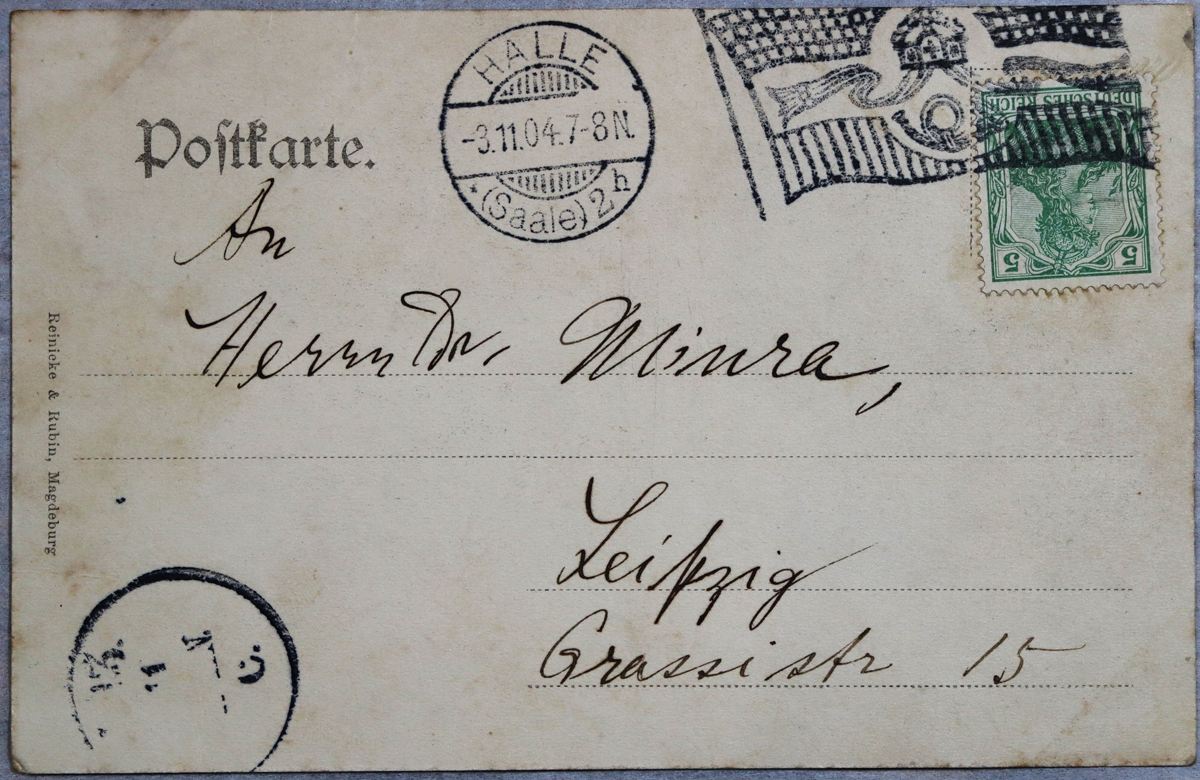 HALLE
-3.11.04.7-8N.
*(Saale) 2h
DEUTSCHES REICH
5 5
Postkarte.
An
Herrn Dr. Miura,
Leipzig
Grassistr 15
Reinicke & Rubin, Magdeburg